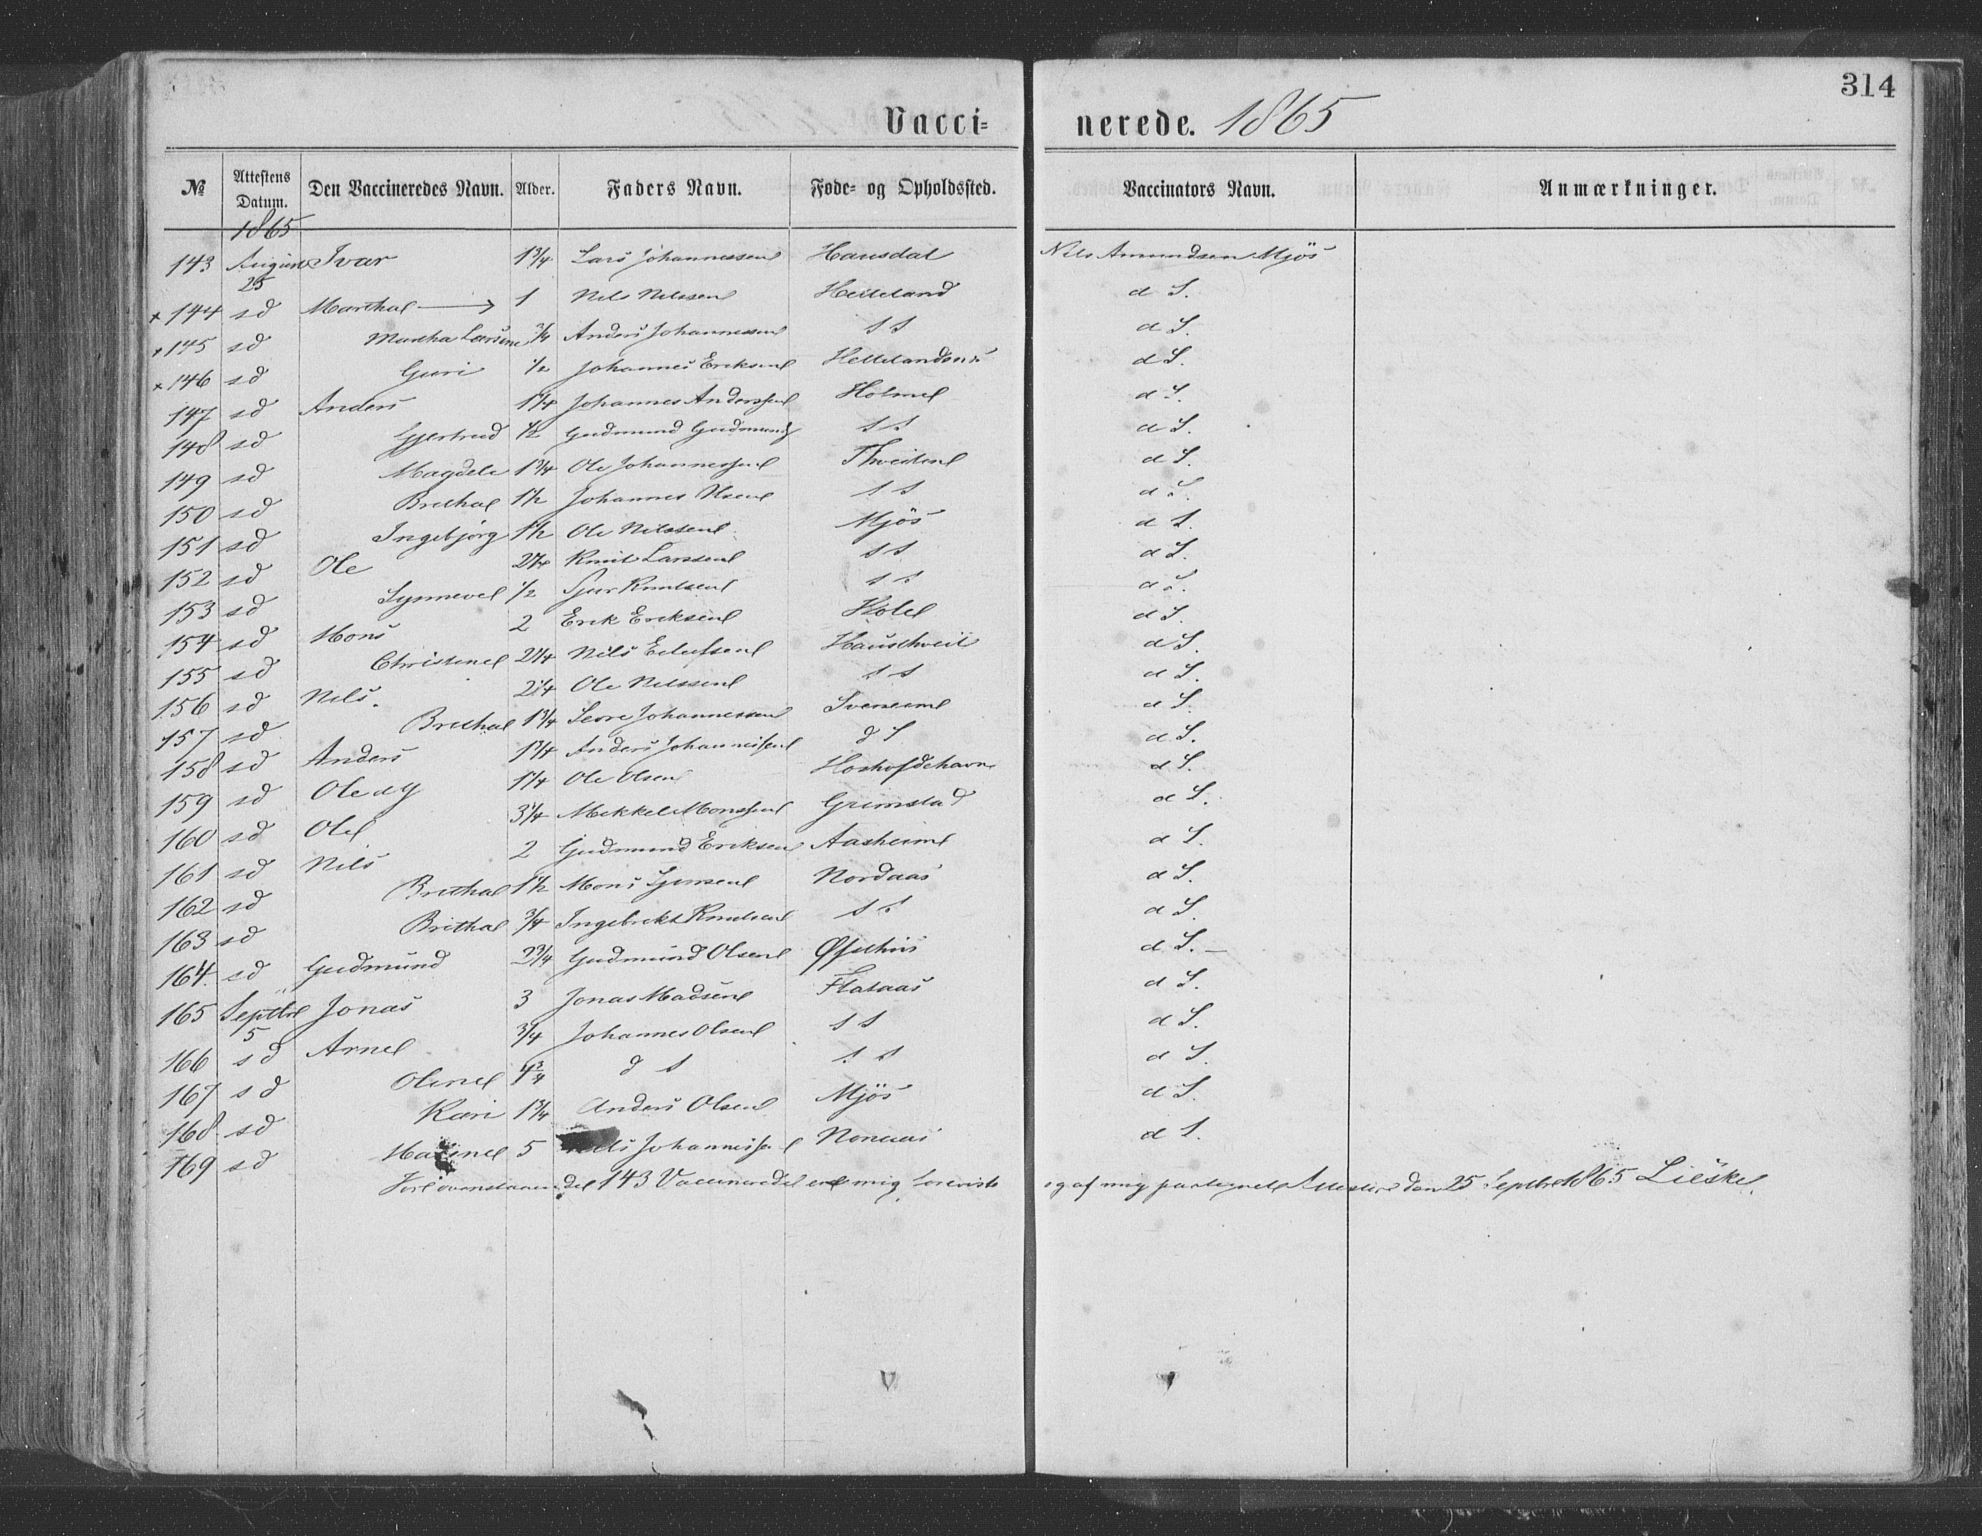 314
Vacci= nerede. 1865
№ Attestens Datum. Den Vaccineredes Navn. Alder. Faders Navn. Føde= og Opholdssted. Vaccinators Navn. Anmærkninger.
1865
143 August 25 Ivar 1 3/4 Lars Johannessen Hausdal Nils Amundsen Mjös
x 144 sd Martha 1 Nils Nilssen Helleland d S.
x 145 sd Martha Larsine 3/4 Anders Johannessen s s d S.
x 146 sd Guri 1/2 Johannes Eriksen d S.
147 sd Anders 1 1/4 Johannes Anderssen Holme d S.
148 sd Gjertrud 1/2 Gudmund Gudmunds s s d S.
149 sd Magdele 1 3/4 Ole Johannessen Thveiten d S.
150 sd Britha 1 1/2 Johannes Olsen s s d S.
151 sd Ingebjörg 1 1/2 Ole Nilssen Mjös d S.
152 sd Ole 2 1/4 Knut Larssen s s d S.
153 sd Synneve 1/2 Sjur Knutsen s s d S.
154 sd Mons 2 Erik Eriksen Hole d S.
155 sd Christine 2 1/4 Nils Hausthveit d S.
156 sd Nils. 2 1/4 Ole Nilssen s s d S.
157 sd Britha 1 3/4 Johannessen d S.
158 sd Anders 1 3/4 Anders Johannessen d S d S.
159 sd Ole 1 1/4 Ole Olsen d S.
160 sd Ole 3 1/4 Mikkel Monssen Grimstad d S.
161 sd Nils 2 Gudmund Eriksen Aasheim d S.
162 sd Britha 1 1/2 Mons Nordaas d S.
163 sd Britha 3/4 Ingebrikt Knutsen s s d S.
164. sd Gudmund 2 3/4 Gudmund Olsen Øfsthus d S.
165 Septbr 5 Jonas 3 Jonas Madsen Flataas d S.
166 sd Arne 3/4 Johannes Olsen s s d S.
167 sd Oline 4 3/4 d s s s d S.
168 sd Kari 1 3/4 Anders Olsen Mjös d S.
169 sd Maline 5 Nils Johannessen d S.
For ovenstaaende 143 Vaccinerede er mig foreviist og af mig paategnet Attester den 25 Septbr 1865